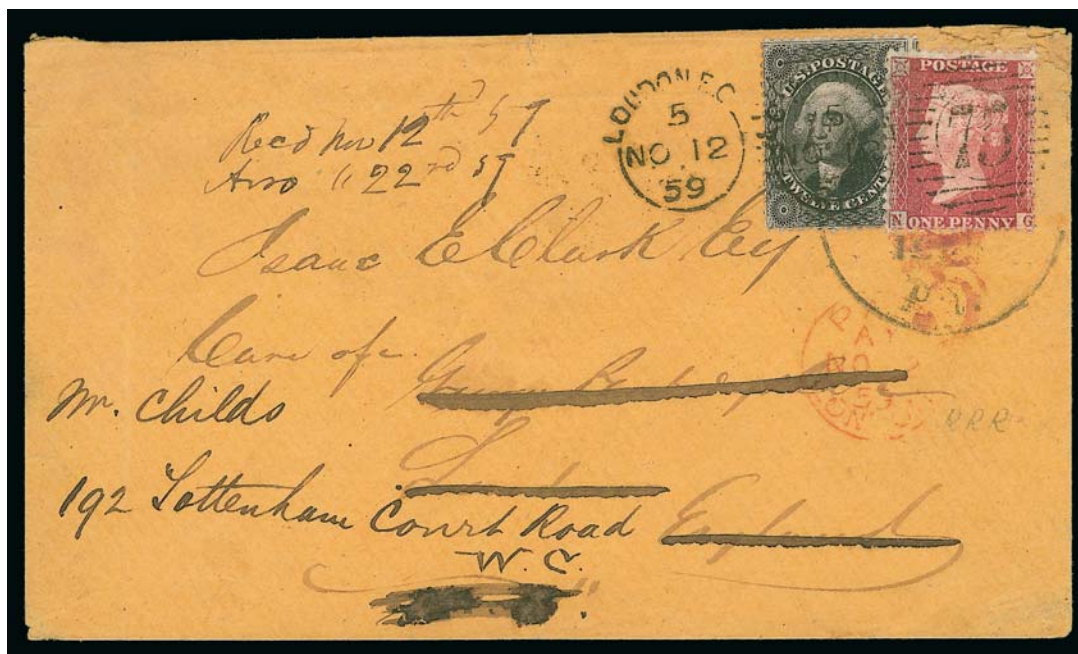 Recd Nov 12th 59
Ans " 22nd 59
LONDON E.C
5
NO 12
59
U.S. POSTAGE
TWELVE CENTS
POSTAGE
N ONE PENNY G
Isaac E Clark Esq
Care of
Mr. Childs
192 Tottenham Court Road England
W.C.
PAI
NO
59
LON
RRR